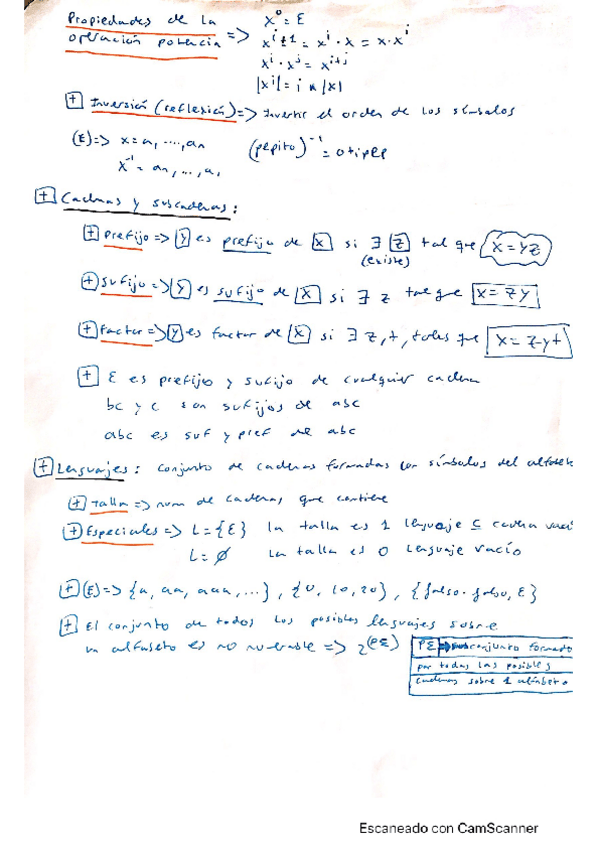 Propiedades de la x⁰ = ε
operación potencia => xⁱ⁺¹ = xⁱ · x = x · xⁱ
xⁱ · xʲ = xⁱ⁺ʲ
|xⁱ| = i * |x|
+ Inversión (reflexión) => Invertir el orden de los símbolos
(E) => x = a₁, ..., an (pepito)⁻¹ = otipep
x⁻¹ = an, ..., a₁
+ Cadenas y subcadenas:
+ prefijo => y es prefijo de x si ∃ z tal que x = yz
(existe)
+ sufijo => y es sufijo de x si ∃ z tal que x = zy
+ factor => y es factor de x si ∃ z, t, tales que x = z·y·t
+ ε es prefijo y sufijo de cualquier cadena
bc y c son sufijos de abc
abc es suf y pref de abc
+ Lenguajes: conjunto de cadenas formadas por símbolos del alfabeto
+ Talla => num de cadenas que contiene
+ Especiales => L = {ε} la talla es 1 lenguaje cadena vací
L = ∅ la talla es 0 lenguaje vacío
+ (E) => {a, aa, aaa, ...}, {0, 10, 20}, {falso·falso, ε}
+ El conjunto de todos los posibles lenguajes sobre
un alfabeto es no numerable => 2^(PΣ) PΣ => conjunto formado
por todas las posibles
cadenas sobre 1 alfabeto
Escaneado con CamScanner